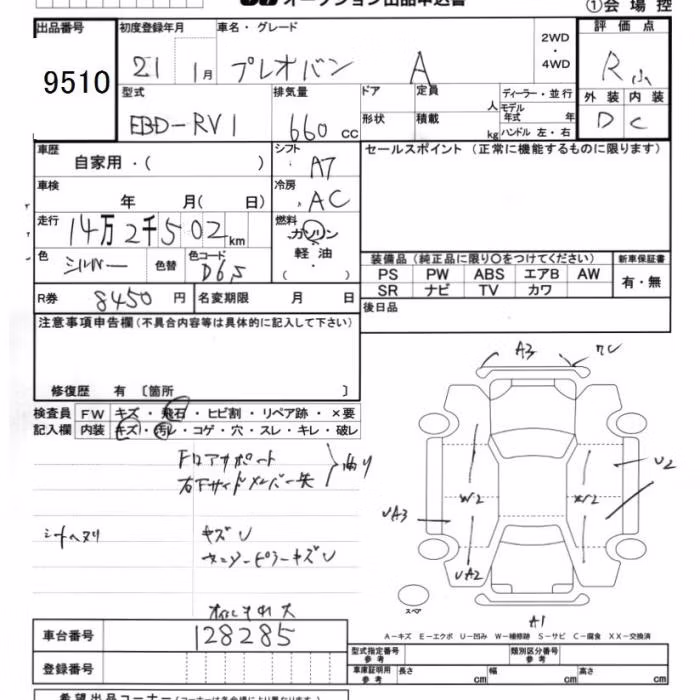 オークション出品申込書
①会場控
出品番号
9510
初度登録年月
21 1月
車名・グレード
プレオバン A
2WD
・
4WD
評価点
R
外装 内装
D C
型式
EBD-RV1
排気量
660 cc
ドア
形状
定員
人
積載
kg
ディーラー・並行
モデル
年式
年
ハンドル 左・右
車歴
自家用・( )
シフト
A7
セールスポイント (正常に機能するものに限ります)
車検
年 月( 日)
冷房
AC
走行
14万2千502km
燃料
ガソリン
・
軽油
( )
色
シルバー
色替
色コード
D6S
R券
8450 円
名変期限 月 日
装備品 (純正品に限り〇をつけてください)
PS PW ABS エアB AW
SR ナビ TV カワ
新車保証書
有・無
後日品
注意事項申告欄 (不具合内容等は具体的に記入して下さい)
修復歴 有 〔箇所 〕
検査員
記入欄
FW キズ・飛石・ヒビ割・リペア跡・×要
内装 キズ・汚レ・コゲ・穴・スレ・キレ・破レ
Fロアサポート
右下サイドメンバー先
曲り
シートヘタリ
キズU
センターピラーキズU
A3
U2
W2
UA3
UA2
A1
スペア
A-キズ E-エクボ U-凹み W-補修跡 S-サビ C-腐食 XX-交換済
車台番号
128285
登録番号
型式指定番号
参考
類別区分番号
参考
車庫証明用
参考
長さ cm 幅 cm 高さ cm
希望出品コーナー (コーナーは会場により異なります)